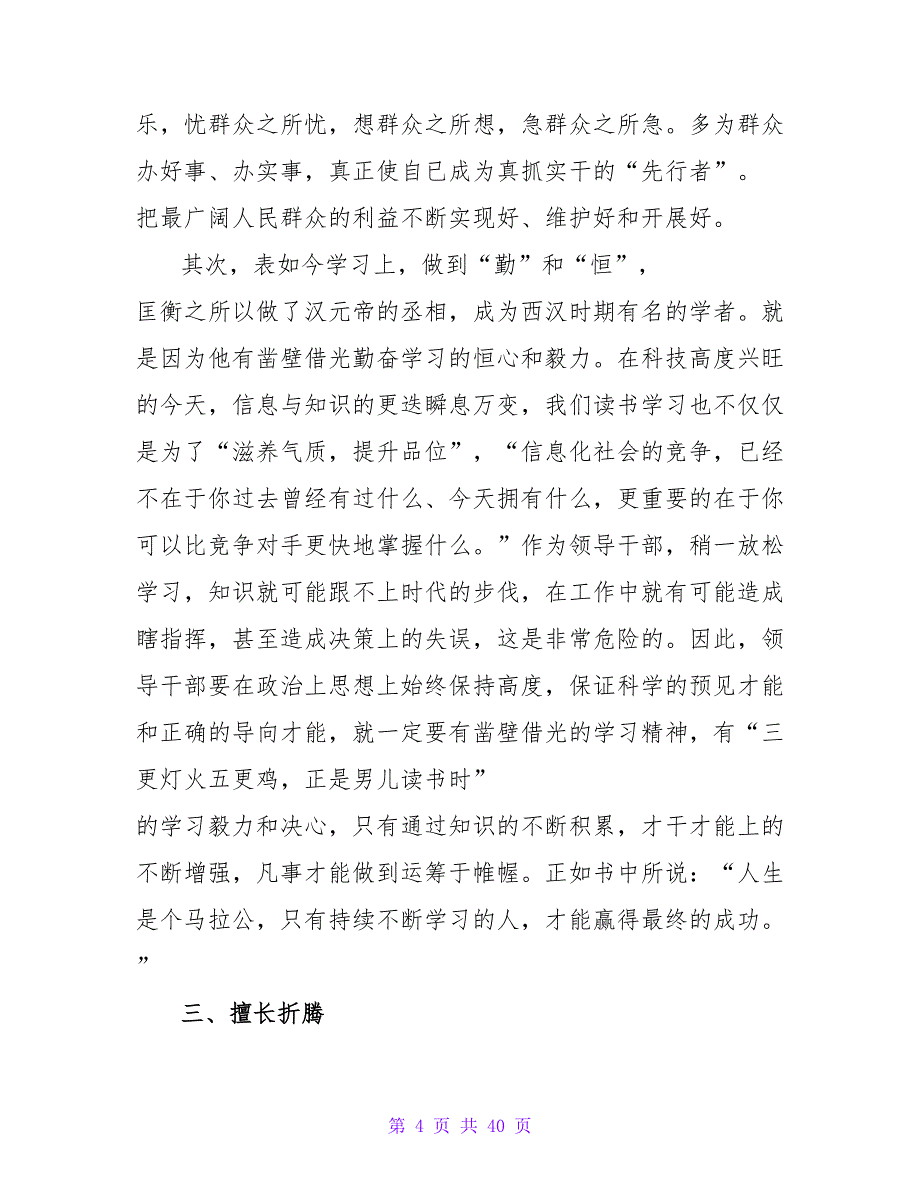 乐，忧群众之所忧，想群众之所想，急群众之所急。多为群众
办好事、办实事，真正使自已成为真抓实干的“先行者”。
把最广阔人民群众的利益不断实现好、维护好和开展好。
其次，表如今学习上，做到“勤”和“恒”，
匡衡之所以做了汉元帝的丞相，成为西汉时期有名的学者。就
是因为他有凿壁借光勤奋学习的恒心和毅力。在科技高度兴旺
的今天，信息与知识的更迭瞬息万变，我们读书学习也不仅仅
是为了“滋养气质，提升品位”，“信息化社会的竞争，已经
不在于你过去曾经有过什么、今天拥有什么，更重要的在于你
可以比竞争对手更快地掌握什么。”作为领导干部，稍一放松
学习，知识就可能跟不上时代的步伐，在工作中就有可能造成
瞎指挥，甚至造成决策上的失误，这是非常危险的。因此，领
导干部要在政治上思想上始终保持高度，保证科学的预见才能
和正确的导向才能，就一定要有凿壁借光的学习精神，有“三
更灯火五更鸡，正是男儿读书时”
的学习毅力和决心，只有通过知识的不断积累，才干才能上的
不断增强，凡事才能做到运筹于帷幄。正如书中所说：“人生
是个马拉公，只有持续不断学习的人，才能赢得最终的成功。
”
三、擅长折腾
第 4 页 共 40 页